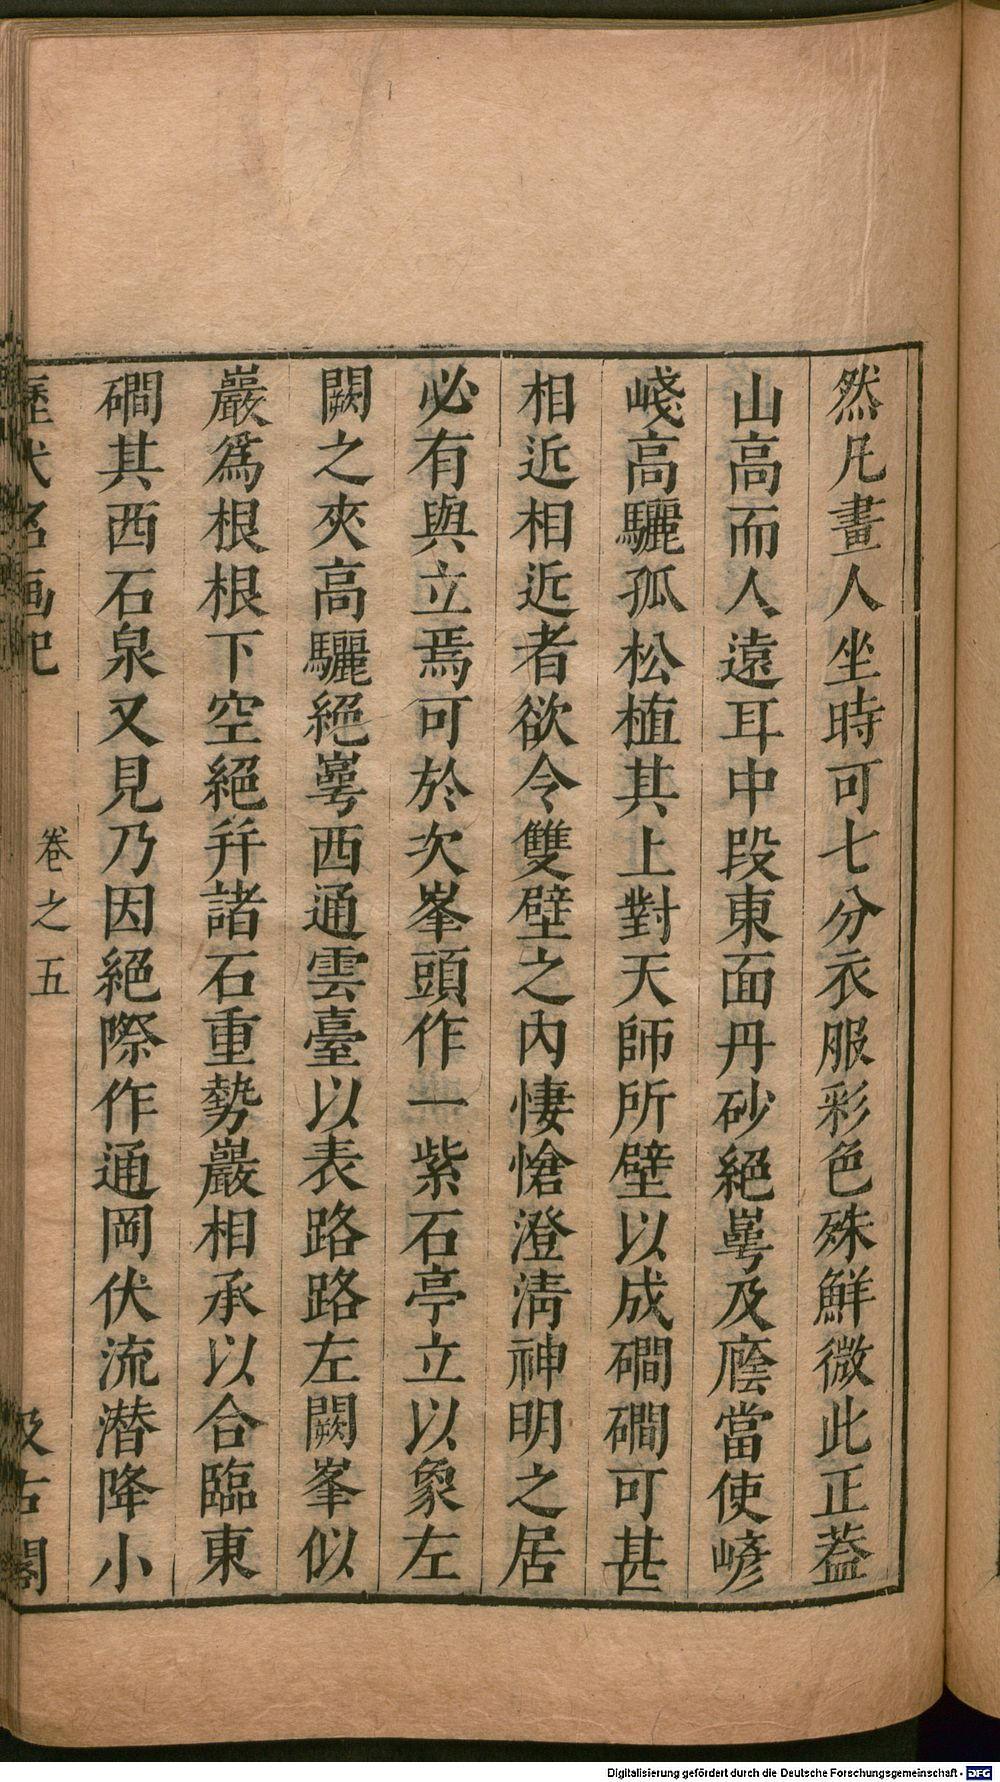 然凡畫人坐時可七分衣服彩色殊鮮微此正葢
山高而人遠耳中段東面丹砂絕崿及廕當使嵃
嶘高驪孤松植其上對天師所壁以成磵磵可甚
相近相近者欲令雙壁之內悽愴澄清神明之居
必有與立焉可於次峯頭作一紫石亭立以象左
闕之夾高驪絕崿西通雲臺以表路路左闕峯似
巖為根根下空絕并諸石重勢巖相承以合臨東
磵其西石泉又見乃因絕際作通岡伏流潜降小
歷代名画記 卷之五 汲古閣
Digitalisierung gefördert durch die Deutsche Forschungsgemeinschaft - DFG